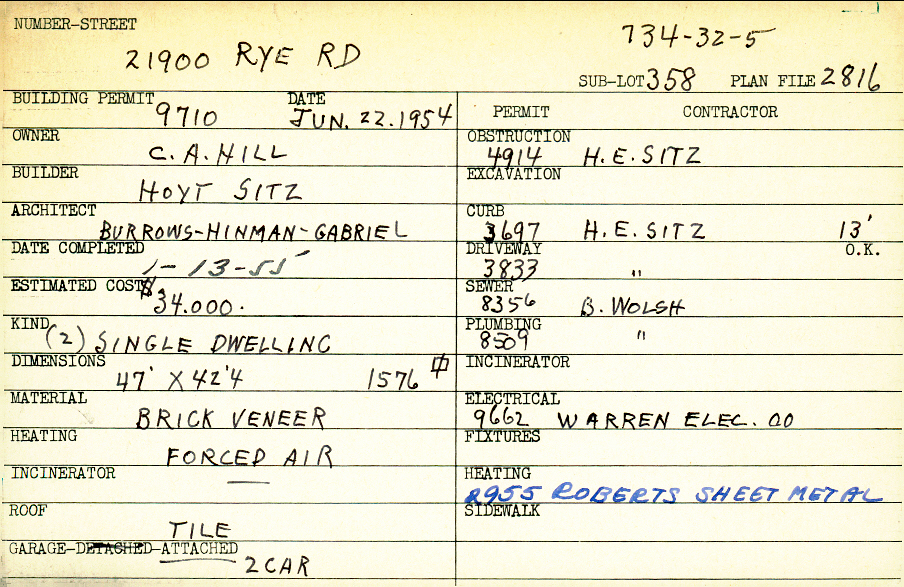 NUMBER-STREET
21900 RYE RD
734-32-5
SUB-LOT 358 PLAN FILE 2816
BUILDING PERMIT 9710 DATE JUN. 22. 1954
PERMIT CONTRACTOR
OWNER
C. A. HILL
OBSTRUCTION
4914 H. E. SITZ
BUILDER
HOYT SITZ
EXCAVATION
ARCHITECT
BURROWS-HINMAN-GABRIEL
CURB
3697 H. E. SITZ 13'
DATE COMPLETED
1-13-55
DRIVEWAY O.K.
3833 "
ESTIMATED COST $34.000.
SEWER
8356 B. WOLSH
KIND
(2) SINGLE DWELLING
PLUMBING
8509 "
DIMENSIONS
47' X 42'4 1576
INCINERATOR
MATERIAL
BRICK VENEER
ELECTRICAL
9662 WARREN ELEC. CO
HEATING
FORCED AIR
FIXTURES
INCINERATOR
—
HEATING
2955 ROBERTS SHEET METAL
ROOF
TILE
SIDEWALK
GARAGE-DETACHED-ATTACHED
2 CAR